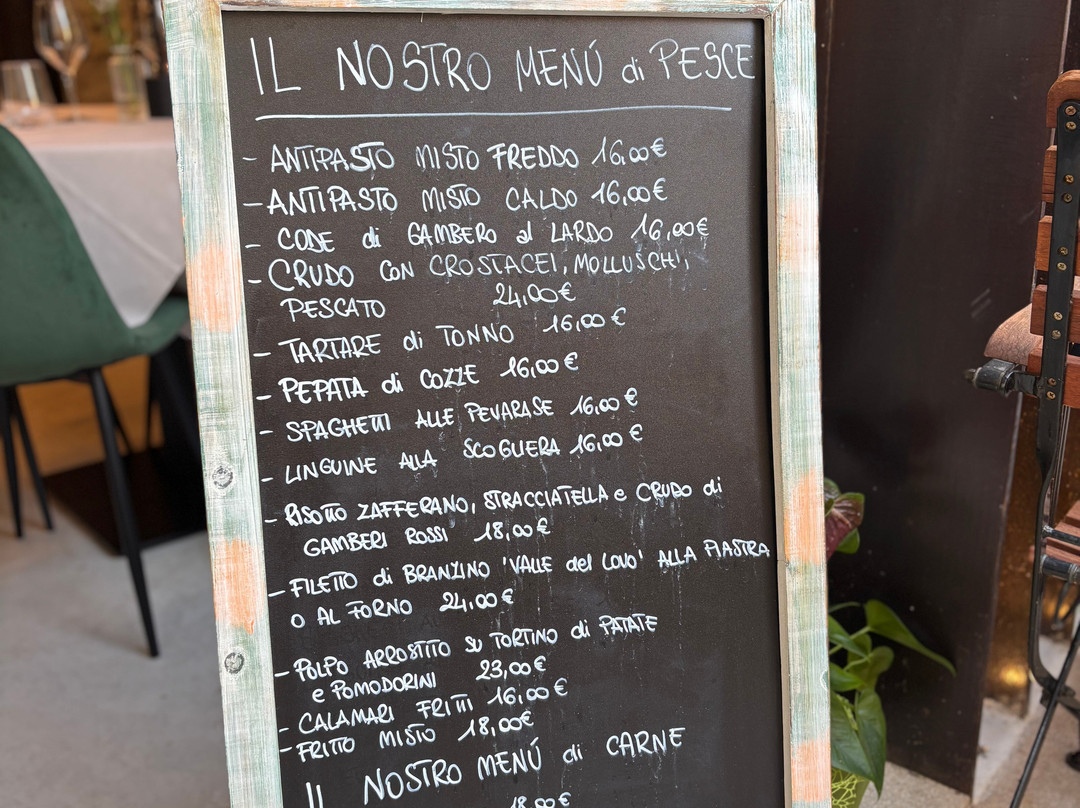 IL NOSTRO MENÚ di PESCE
- ANTIPASTO MISTO FREDDO 16,00€
- ANTIPASTO MISTO CALDO 16,00€
- CODE di GAMBERO al LARDO 16,00€
- CRUDO CON CROSTACEI, MOLLUSCHI,
PESCATO 24,00€
- TARTARE di TONNO 16,00€
- PEPATA di COZZE 16,00€
- SPAGHETTI ALLE PEVARASE 16,00€
- LINGUINE ALLA SCOGLIERA 16,00€
- RISOTTO ZAFFERANO, STRACCIATELLA e CRUDO di
GAMBERI ROSSI 18,00€
- FILETTO di BRANZINO 'VALLE del LOVO' ALLA PIASTRA
O AL FORNO 24,00€
- POLPO ARROSTITO SU TORTINO di PATATE
e POMODORINI 23,00€
- CALAMARI FRITTI 16,00€
- FRITTO MISTO 18,00€
IL NOSTRO MENÚ di CARNE
18,00€